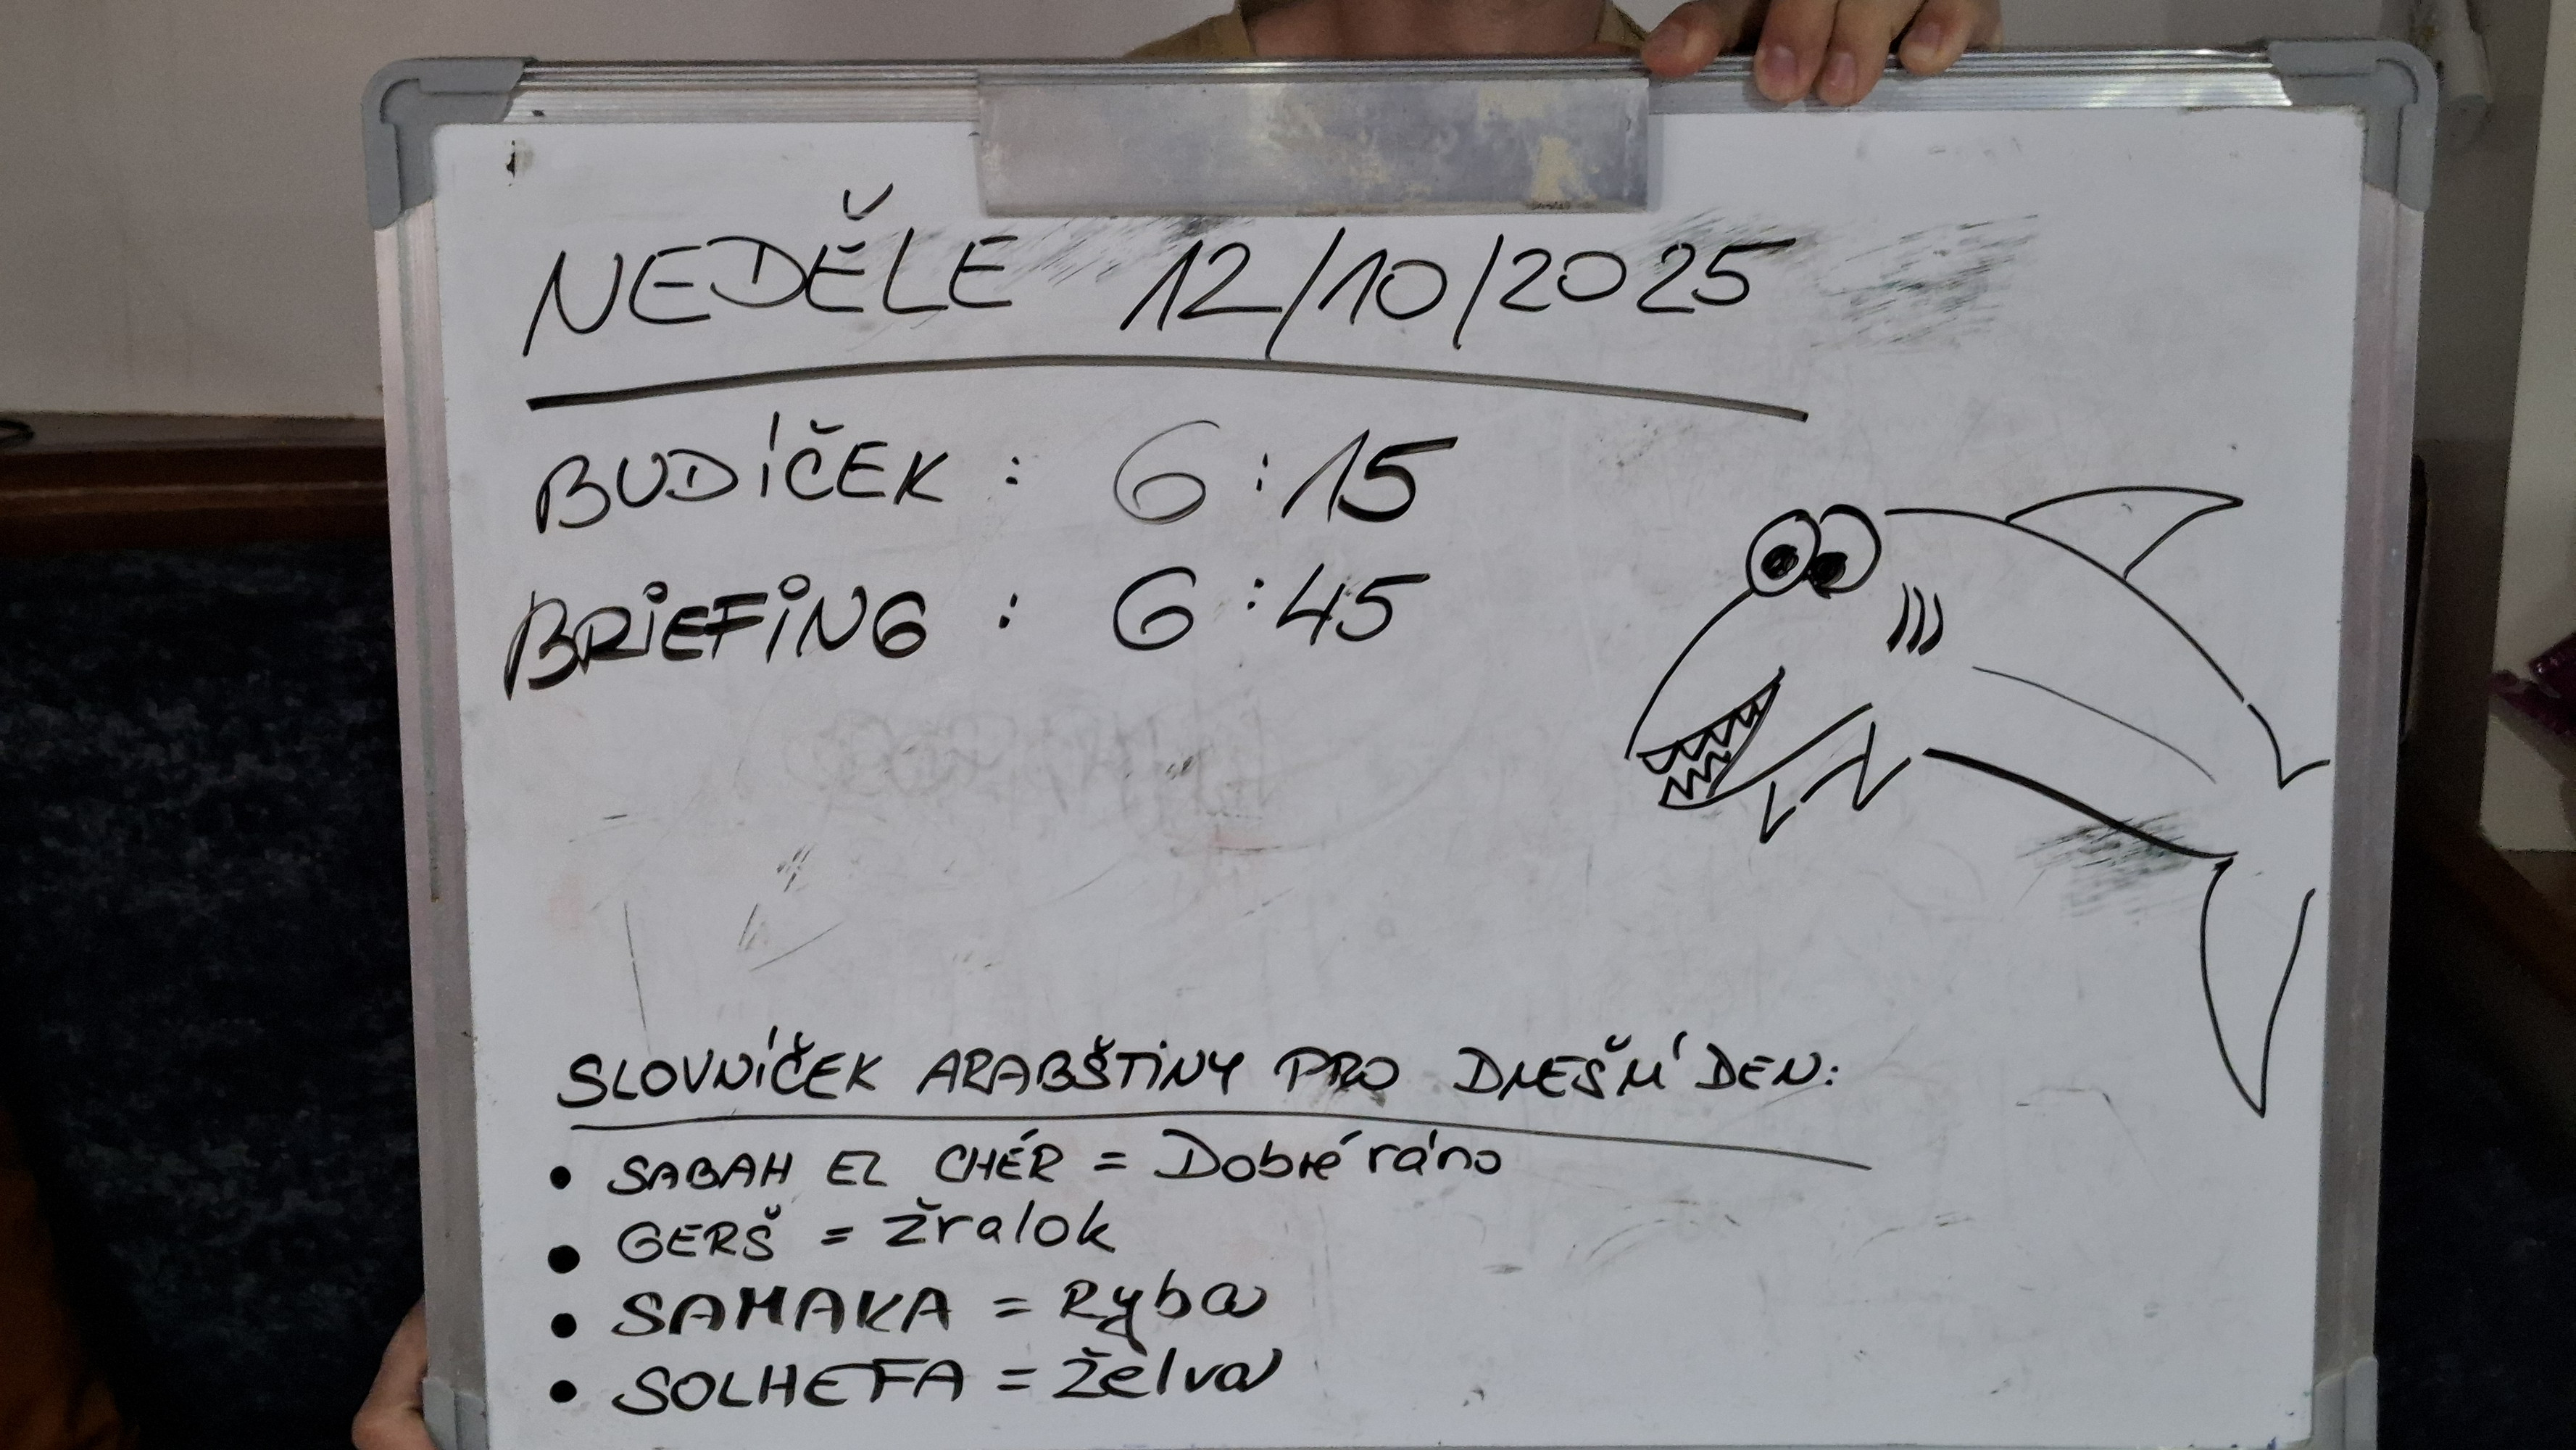 NEDĚLE 12/10/2025
BUDÍČEK : 6:15
BRIEFING : 6:45
SLOVNÍČEK ARABŠTINY PRO DNEŠNÍ DEN:
• SABAH EL CHÉR = Dobré ráno
• GERŠ = žralok
• SAMAKA = Ryba
• SOLHEFA = želva